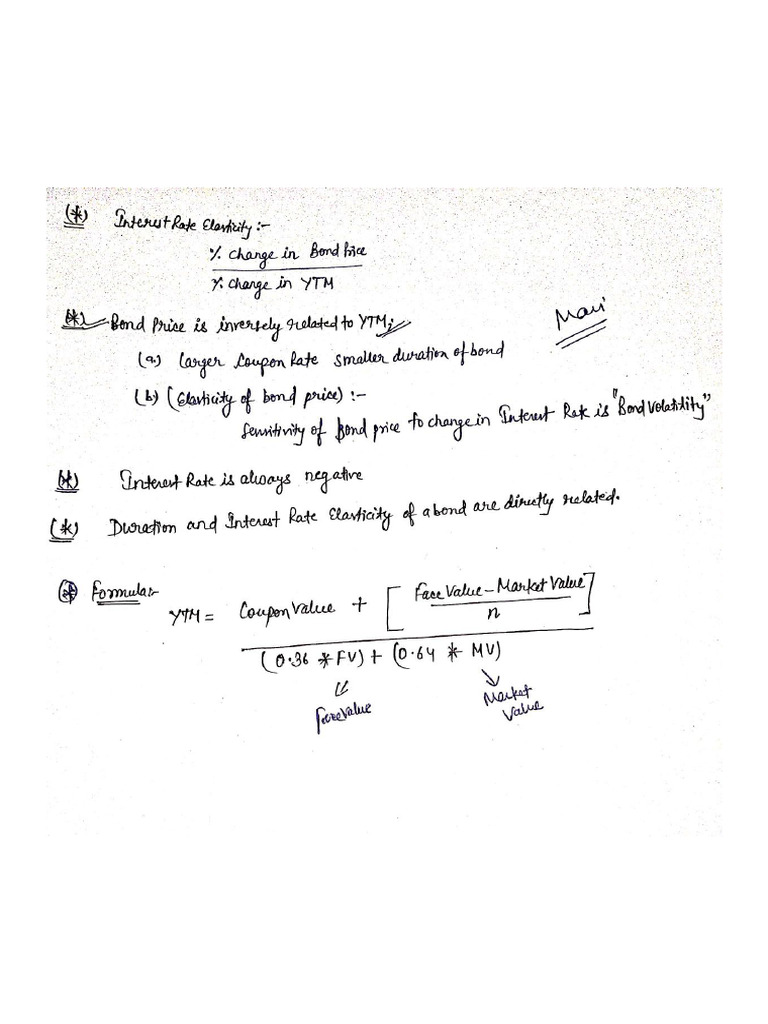 (*) Interest Rate Elasticity :-
% change in Bond Price
% change in YTM
(*) Bond Price is inversely related to YTM;
(a) Larger Coupon Rate smaller duration of bond
(b) (Elasticity of bond price) :-
Sensitivity of Bond price to change in Interest Rate is "Bond Volatility"
(*) Interest Rate is always negative
(*) Duration and Interest Rate Elasticity of a bond are directly related.
(*) Formula:-
YTM = Coupon Value + [ Face Value - Market Value
n ]
(0.36 * FV) + (0.64 * MV)
Face Value
Market
Value